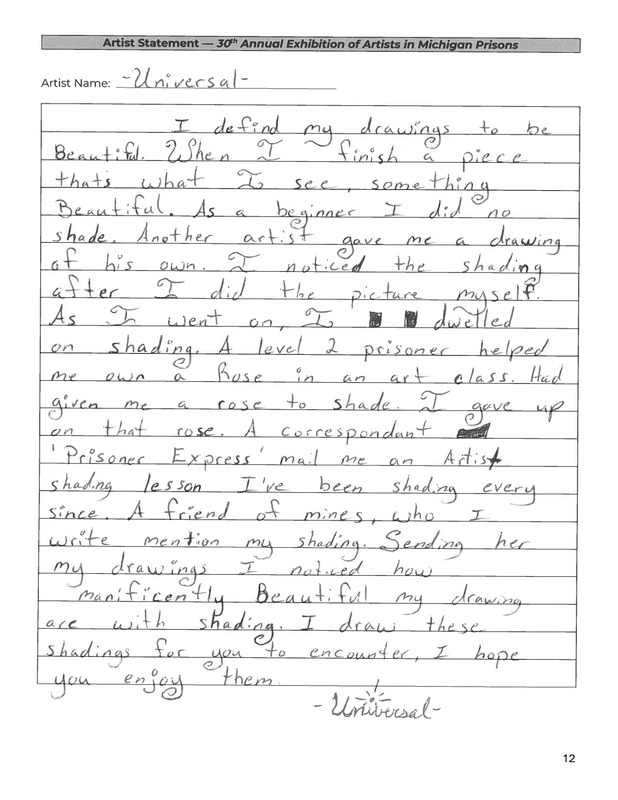 Artist Statement — 30th Annual Exhibition of Artists in Michigan Prisons
Artist Name: -Universal-
I defind my drawings to be
Beautiful. When I finish a piece
thats what I see, something
Beautiful. As a beginner I did no
shade. Another artist gave me a drawing
of his own. I noticed the shading
after I did the picture myself.
As I went on, I dwelled
on shading. A level 2 prisoner helped
me own a Rose in an art class. Had
given me a rose to shade. I gave up
on that rose. A correspondant
'Prisoner Express' mail me an Artist
shading lesson I've been shading every
since. A friend of mines, who I
write mention my shading. Sending her
my drawings I noticed how
manificently Beautiful my drawing
are with shading. I draw these
shadings for you to encounter, I hope
you enjoy them.
-Universal-
12